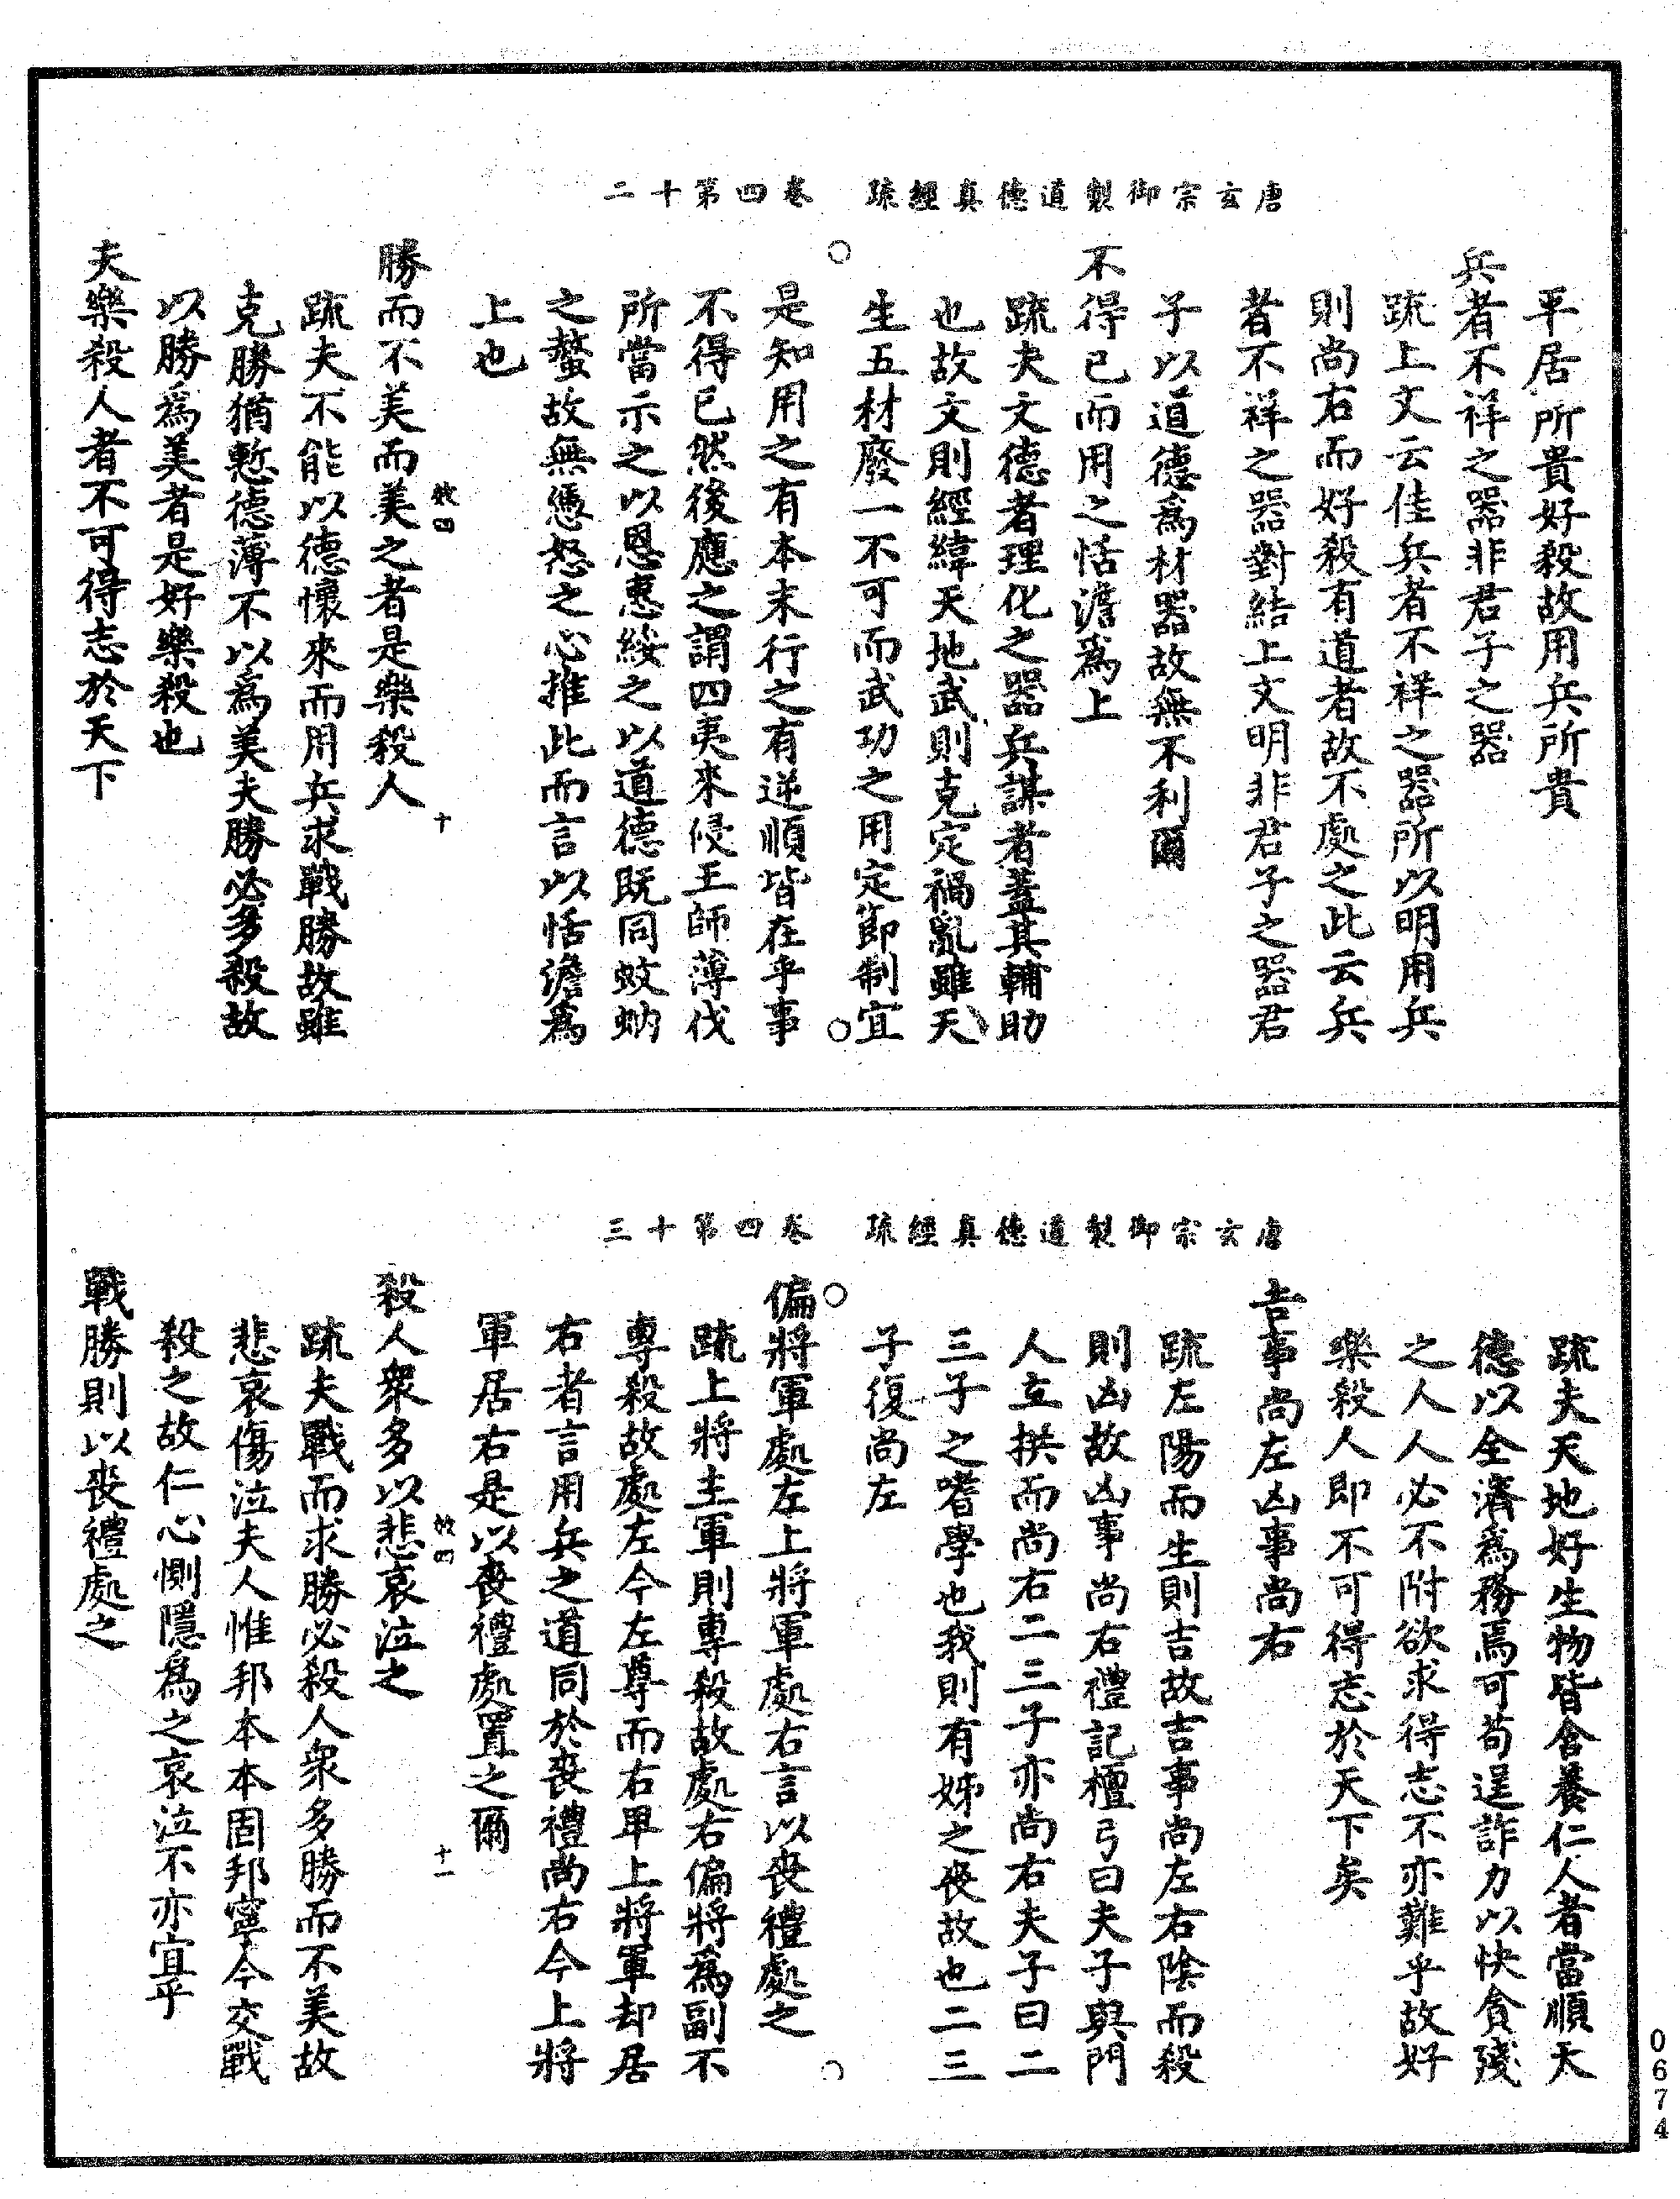 唐玄宗御製道德真經疏　卷四第十二
平居所貴好殺故用兵所貴
兵者不祥之器非君子之器
疏上文云佳兵者不祥之器所以明用兵
則尚右而好殺有道者故不處之此云兵
者不祥之器對結上文明非君子之器君
子以道德為材器故無不利爾
不得已而用之恬澹為上
疏夫文德者理化之器兵謀者蓋其輔助
也故文則經緯天地武則克定禍亂雖天
生五材廢一不可而武功之用定節制宜
是知用之有本末行之有逆順皆在乎事
不得已然後應之謂四夷來侵王師薄伐
所當示之以恩惠綏之以道德既同蚊蚋
之螫故無憑怒之心推此而言以恬澹為
上也
效四　十
勝而不美而美之者是樂殺人
疏夫不能以德懷來而用兵求戰勝故雖
克勝猶慙德薄不以為美夫勝必多殺故
以勝為美者是好樂殺也
夫樂殺人者不可得志於天下
唐玄宗御製道德真經疏　卷四第十三
疏夫天地好生物皆含養仁人者當順天
德以全濟為務焉可苟逞詐力以快貪殘
之人人必不附欲求得志不亦難乎故好
樂殺人即不可得志於天下矣
吉事尚左凶事尚右
疏左陽而生則吉故吉事尚左右陰而殺
則凶故凶事尚右禮記檀弓曰夫子與門
人立拱而尚右二三子亦尚右夫子曰二
三子之嗜學也我則有姊之喪故也二三
子復尚左
偏將軍處左上將軍處右言以喪禮處之
疏上將主軍則專殺故處右偏將為副不
專殺故處左今左尊而右卑上將軍却居
右者言用兵之道同於喪禮尚右今上將
軍居右是以喪禮處置之爾
效四　十一
殺人衆多以悲哀泣之
疏夫戰而求勝必殺人衆多勝而不美故
悲哀傷泣夫人惟邦本本固邦寧今交戰
殺之故仁心惻隱為之哀泣不亦宜乎
戰勝則以喪禮處之
0674